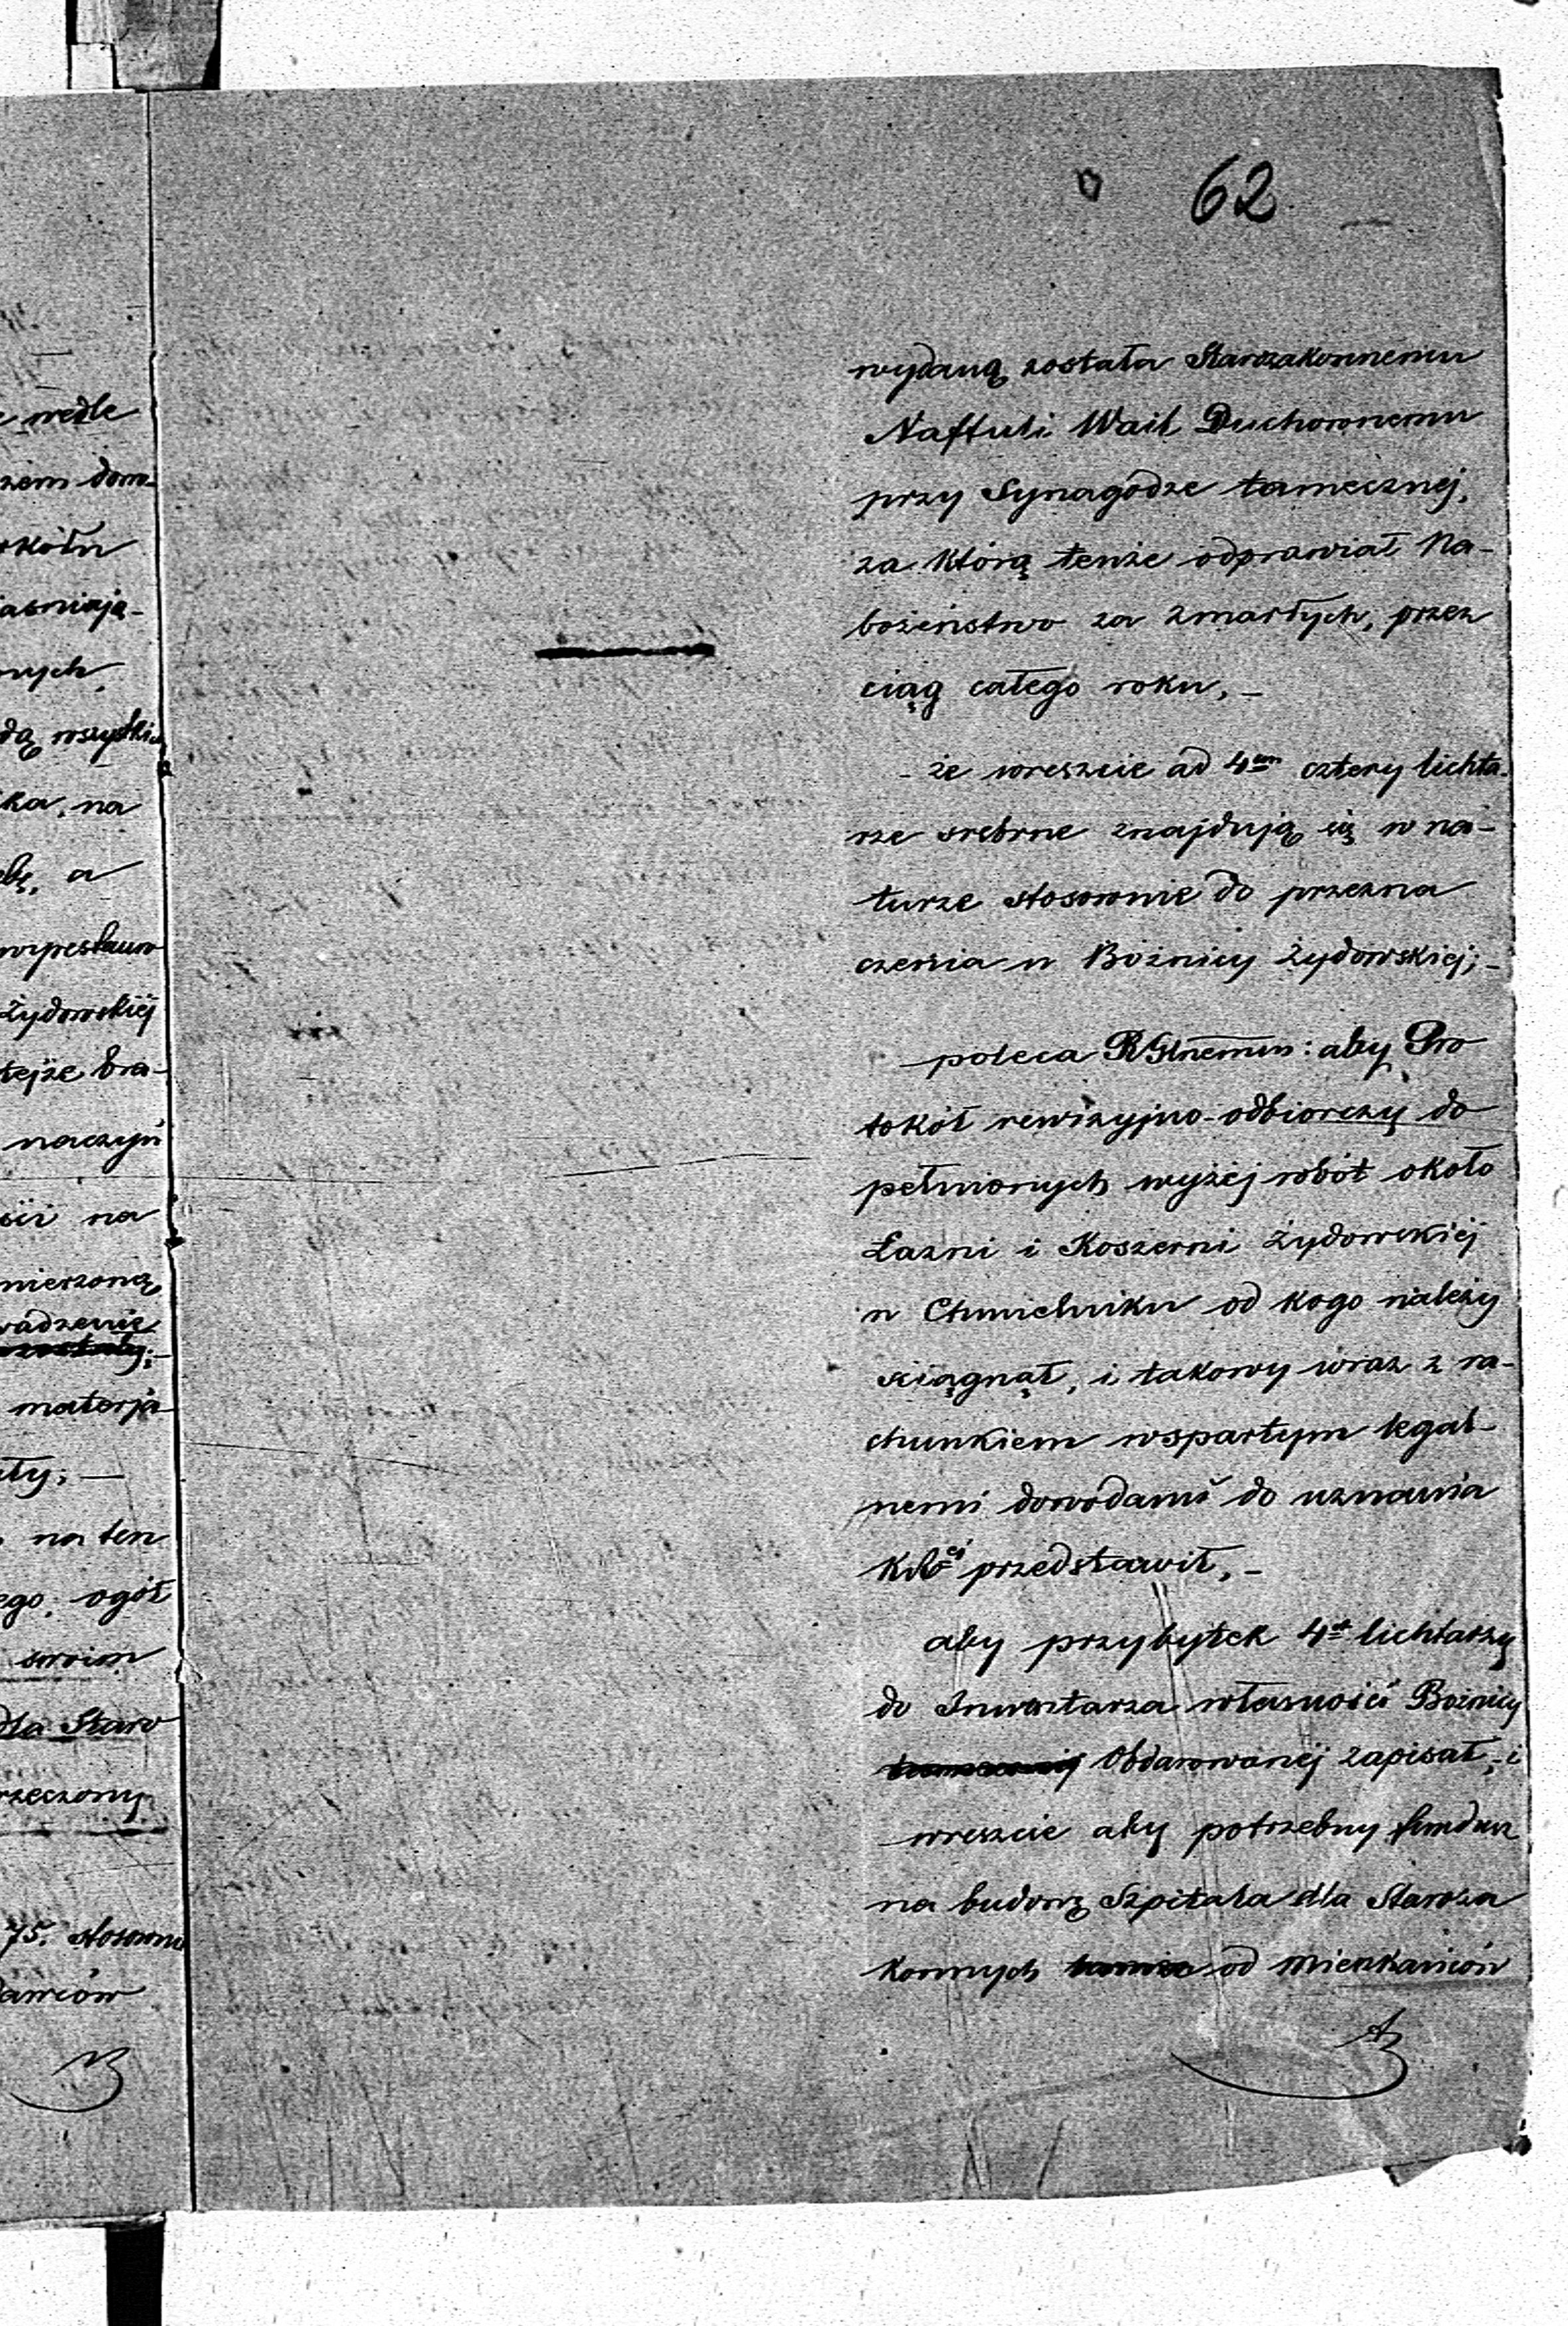 62
wydaną została Starozakonnemu
Naftuli Wail Duchownemu
przy Synagodze tamecznej,
za którą tenże odprawiał Na-
bożeństwo za zmarłych, przez
ciąg całego roku, -
- że wreszcie ad 4um cztery lichta-
rze srebrne znajdują się w na-
turze stosownie do przezna
czenia w Bóżnicy Żydowskiej; -
poleca : aby Pro
tokół rewizyjno-odbiorczy do
pełnionych wyżej robót około
Łazni i Koszerni Żydowskiej
w Chmielniku od kogo należy
sciągnął, i takowy wraz z ra-
chunkiem wspartym legal-
nemi dowodami do uznania
przedstawił, -
aby przybytek 4ch lichtarzy
do Inwentarza własności Bożnicy
Obdarowanej zapisał, - i
wreszcie aby potrzebny fundusz
na budowę Szpitala dla Staroza
konnych od mieszkańców
wedle
zem dow-
okółu
jasniają-
nych
dą wszystkie
ka, na
a
Żydowskiej
tejże bra-
naczyń
na
mierzoną
wadzenie
materja
ały; -
na ten
ego, ogół
swoim
dla Staro
rzeczony
75. stosownie